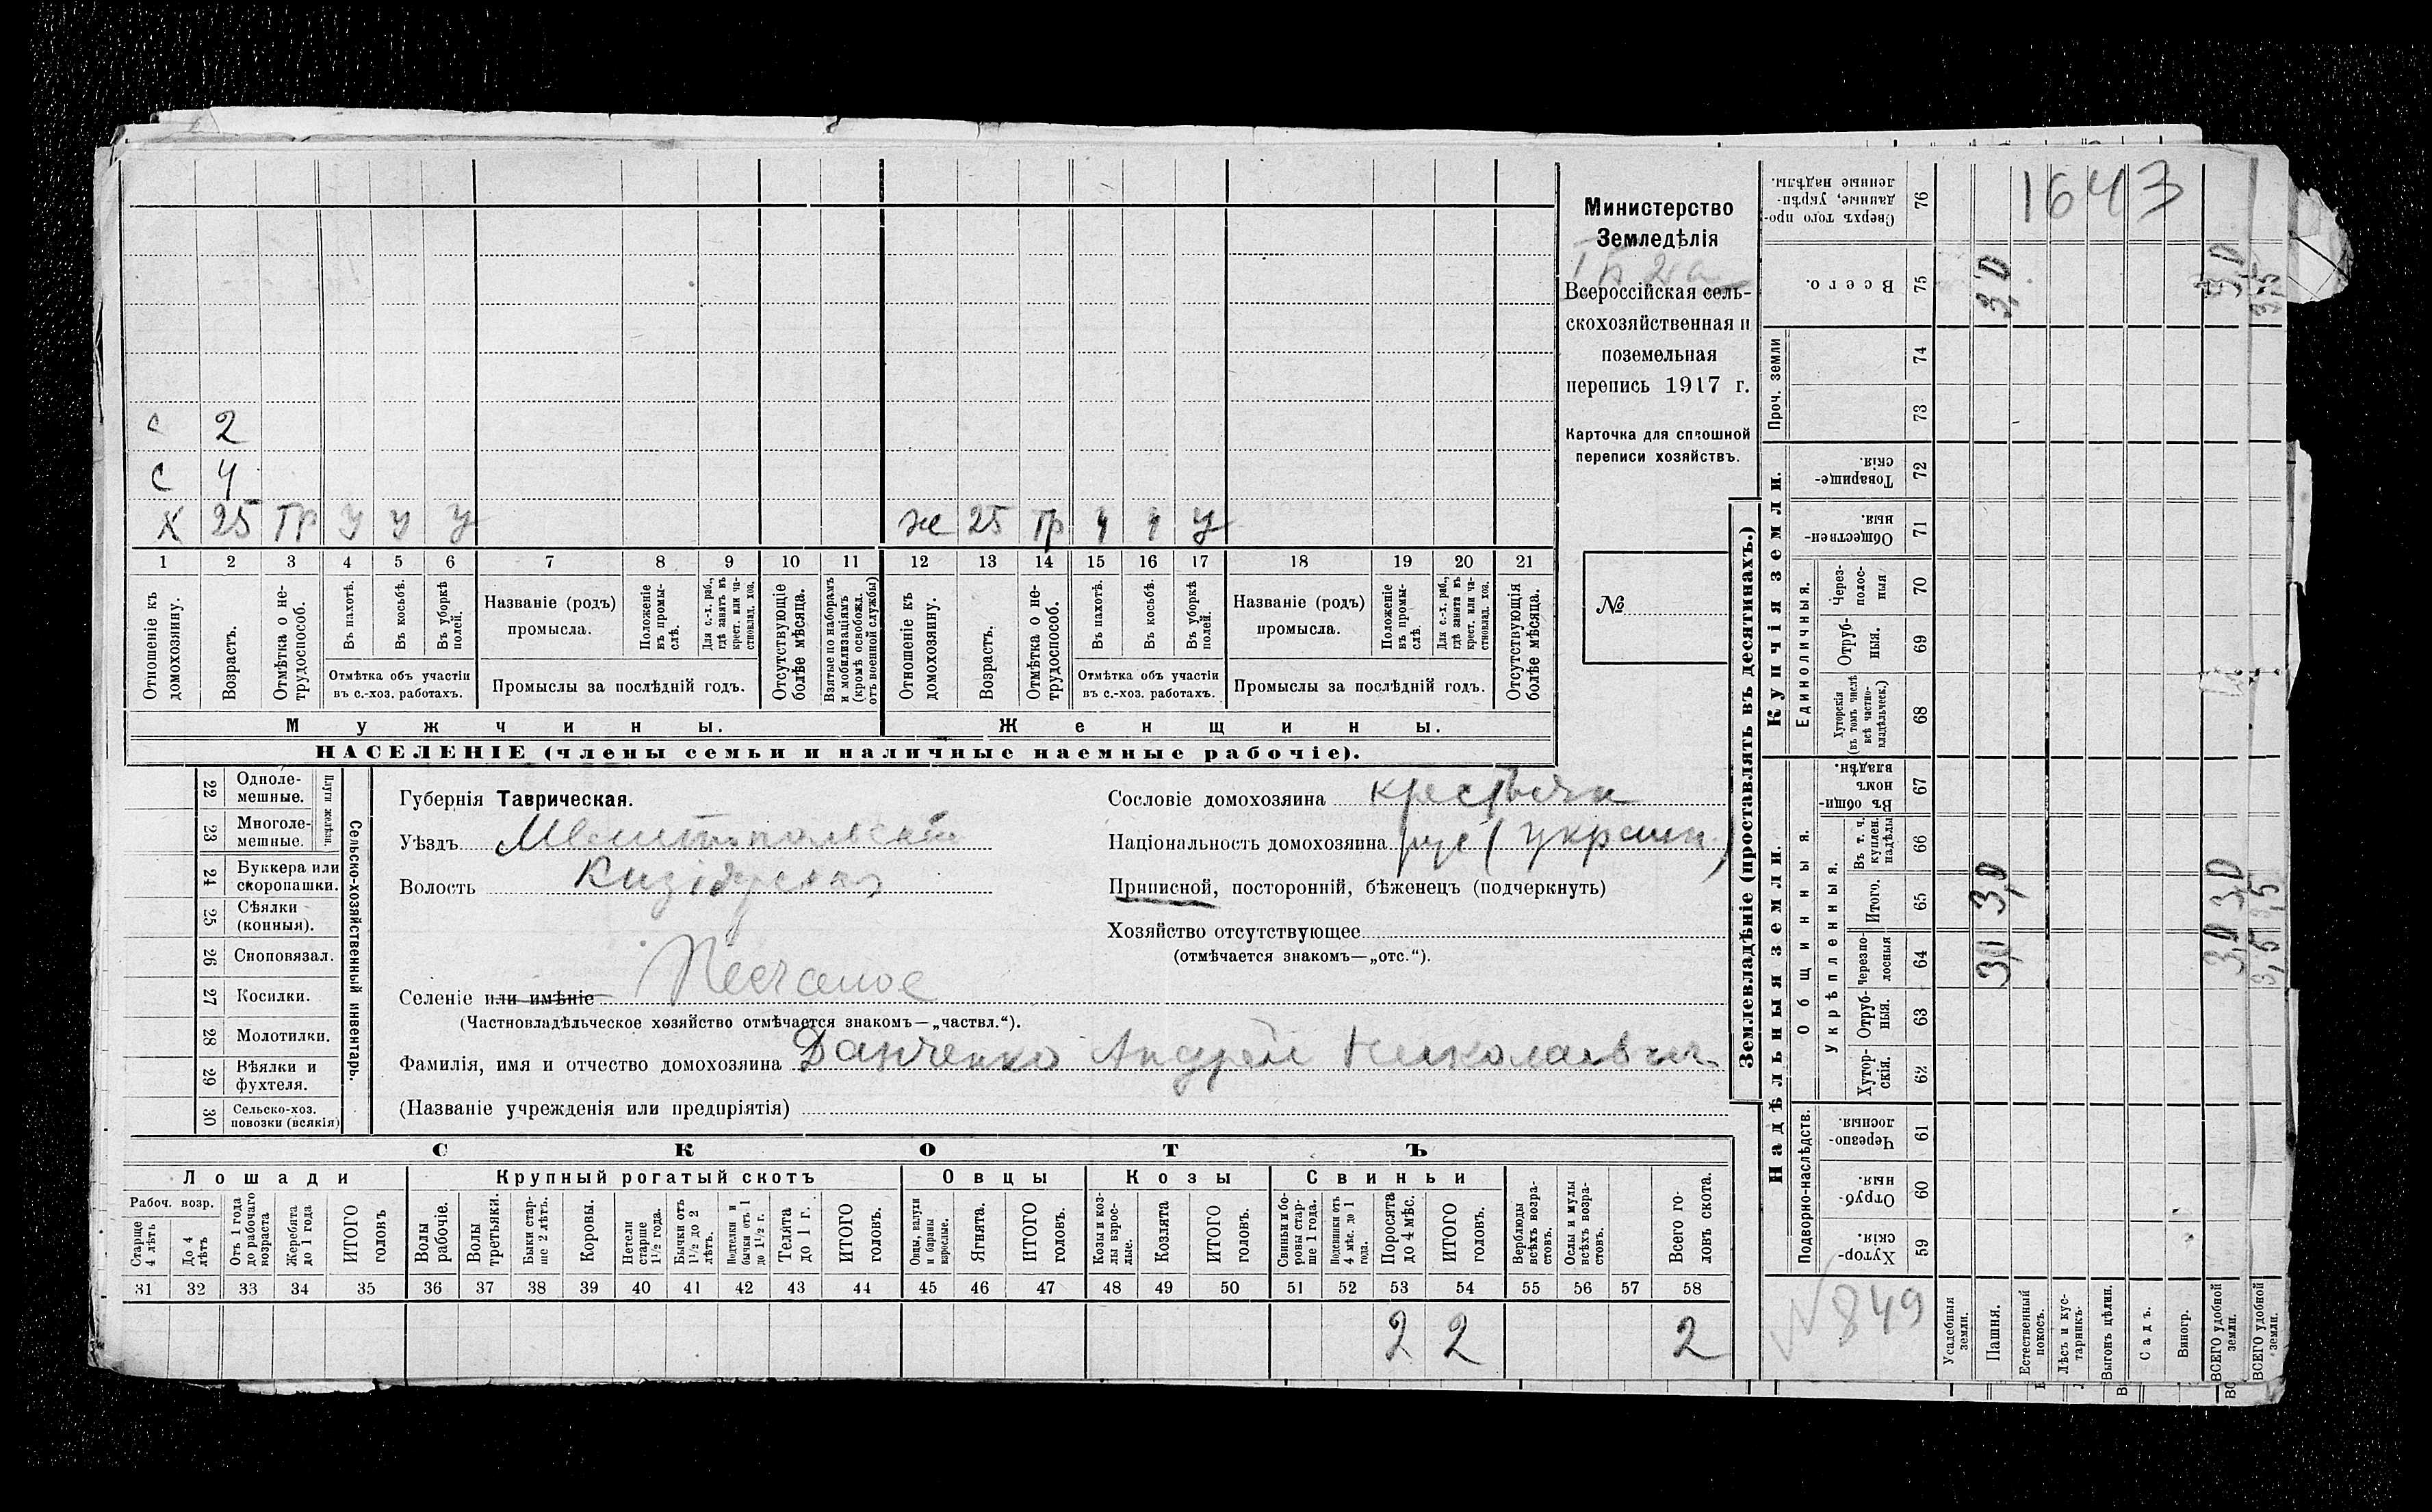 1643
Министерство
Земледѣлія
Всероссійская сель-
скохозяйственная и
поземельная
перепись 1917 г.
Карточка для сплошной
переписи хозяйствъ.
№
с 2
с 4
х 25 тр у у у ж 25 тр ч ч у
1 2 3 4 5 6 7 8 9 10 11 12 13 14 15 16 17 18 19 20 21
Отношеніе къ домохозяину.
Возрастъ.
Отмѣтка о не-трудоспособ.
Въ пахотѣ.
Въ косьбѣ.
Въ уборкѣ полей.
Отмѣтка объ участіи
въ с.-хоз. работахъ.
Названіе (родъ)
промысла.
Положеніе въ промы-слѣ.
Для с.-х. раб., гдѣ занятъ въ крест. или ча-стновлад. хоз.
Промыслы за послѣдній годъ.
Отсутствующіе болѣе мѣсяца.
Взятые по наборамъ и мобилизаціямъ (кромѣ освобожд. отъ военной службы)
Отношеніе къ домохозяину.
Возрастъ.
Отмѣтка о не-трудоспособ.
Въ пахотѣ.
Въ косьбѣ.
Въ уборкѣ полей.
Отмѣтка объ участіи
въ с.-хоз. работахъ.
Названіе (родъ)
промысла.
Положеніе въ промы-слѣ.
Для с.-х. раб., гдѣ занята въ крест. или ча-стновлад. хоз.
Промыслы за послѣдній годъ.
Отсутствующія болѣе мѣсяца.
Мужчины. Женщины.
НАСЕЛЕНІЕ (члены семьи и наличные наемные рабочіе).
22 Одноле-мешные.
23 Многоле-мешные.
Плуги желѣзн.
24 Буккера или скоропашки.
25 Сѣялки (конныя).
26 Сноповязал.
27 Косилки.
28 Молотилки.
29 Вѣялки и фухтеля.
30 Сельско-хоз. повозки (всякія)
Сельско-хозяйственный инвентарь.
Губернія Таврическая.
Уѣздъ Мелитопольскій
Волость
Селеніе или имѣніе Песчаное
(Частновладѣльческое хозяйство отмѣчается знакомъ—„частвл.“).
Фамилія, имя и отчество домохозяина Данченко Андрей Николаевич
(Названіе учрежденія или предпріятія)
Сословіе домохозяина крестьян
Національность домохозяина рус (украин.)
Приписной, посторонній, бѣженецъ (подчеркнуть)
Хозяйство отсутствующее
(отмѣчается знакомъ—„отс.“).
СКОТЪ
Лошади Крупный рогатый скотъ Овцы Козы Свиньи
Рабоч. возр.
Старше 4 лѣтъ
До 4 лѣтъ
Отъ 1 года до рабочаго возраста
Жеребята до 1 года
ИТОГО головъ
Волы рабочіе.
Волы третьяки.
Быки стар-ше 2 лѣтъ.
Коровы.
Нетели старше 1½ года.
Бычки отъ 1½ до 2 лѣтъ.
Подтелки и бычки отъ 1 до 1½ г.
Телята до 1 г.
ИТОГО головъ.
Овцы, валухи и бараны взрослые.
Ягнята.
ИТОГО головъ.
Козы и коз-лы взрос-лые.
Козлята
ИТОГО головъ.
Свиньи и бо-ровы стар-ше 1 года.
Подсвинки отъ 4 мѣс. до 1 года.
Поросята до 4 мѣс.
ИТОГО головъ.
Верблюды всѣхъ возра-стовъ.
Ослы и мулы всѣхъ возра-стовъ.
Всего го-ловъ скота.
31 32 33 34 35 36 37 38 39 40 41 42 43 44 45 46 47 48 49 50 51 52 53 54 55 56 57 58
2 2 2
Землевладѣніе (проставлять въ десятинахъ.)
Надѣльныя земли.
Купчія земли.
Проч. земли
Сверхъ того про-данные, укрѣп-ленные надѣлы. 76
Всего. 75 3,0 3,0 3,5
74
73
Товарище-скія. 72
Обществен-ныя. 71
Единоличныя.
Через-полос-ныя 70
Отруб-ныя. 69
Хуторскія (въ томъ числѣ всѣ частно-владѣльческ.) 68
Общинныя.
Въ общи-номъ владѣн. 67
Укрѣпленныя.
Въ т. ч. куплен. надѣлы 66
Итого. 65 3,0 3,0 3,5
Черезпо-лосныя 64 3,0 3,0 3,5
Отруб-ныя. 63
Хутор-скія. 62
Подворно-наслѣдств.
Черезпо-лосныя. 61
Отруб-ныя. 60
Хутор-скія. 59
№849
Усадебныя земли.
Пашня.
Естественный покосъ.
Лѣсъ и кус-тарникъ.
Выгонъ цѣлин.
Садъ.
Виногр.
ВСЕГО удобной земли.
ВСЕГО удобной земли.